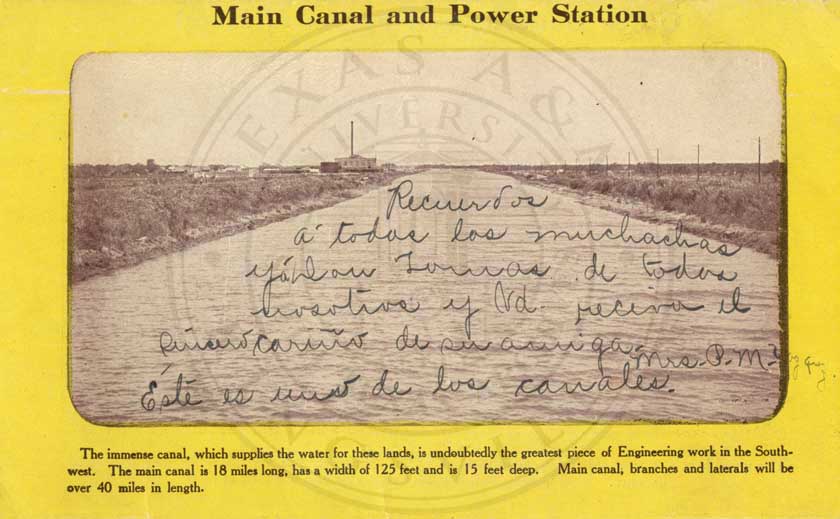 Main Canal and Power Station
Recuerdos
á todas las muchachas
y á Don Tomas de todos
nosotros y Vd. reciva el
sincero cariño de su amiga.
Mrs. P. M.
Éste es uno de los canales.
The immense canal, which supplies the water for these lands, is undoubtedly the greatest piece of Engineering work in the South-
west. The main canal is 18 miles long, has a width of 125 feet and is 15 feet deep. Main canal, branches and laterals will be
over 40 miles in length.
TEXAS A&M
UNIVERSITY